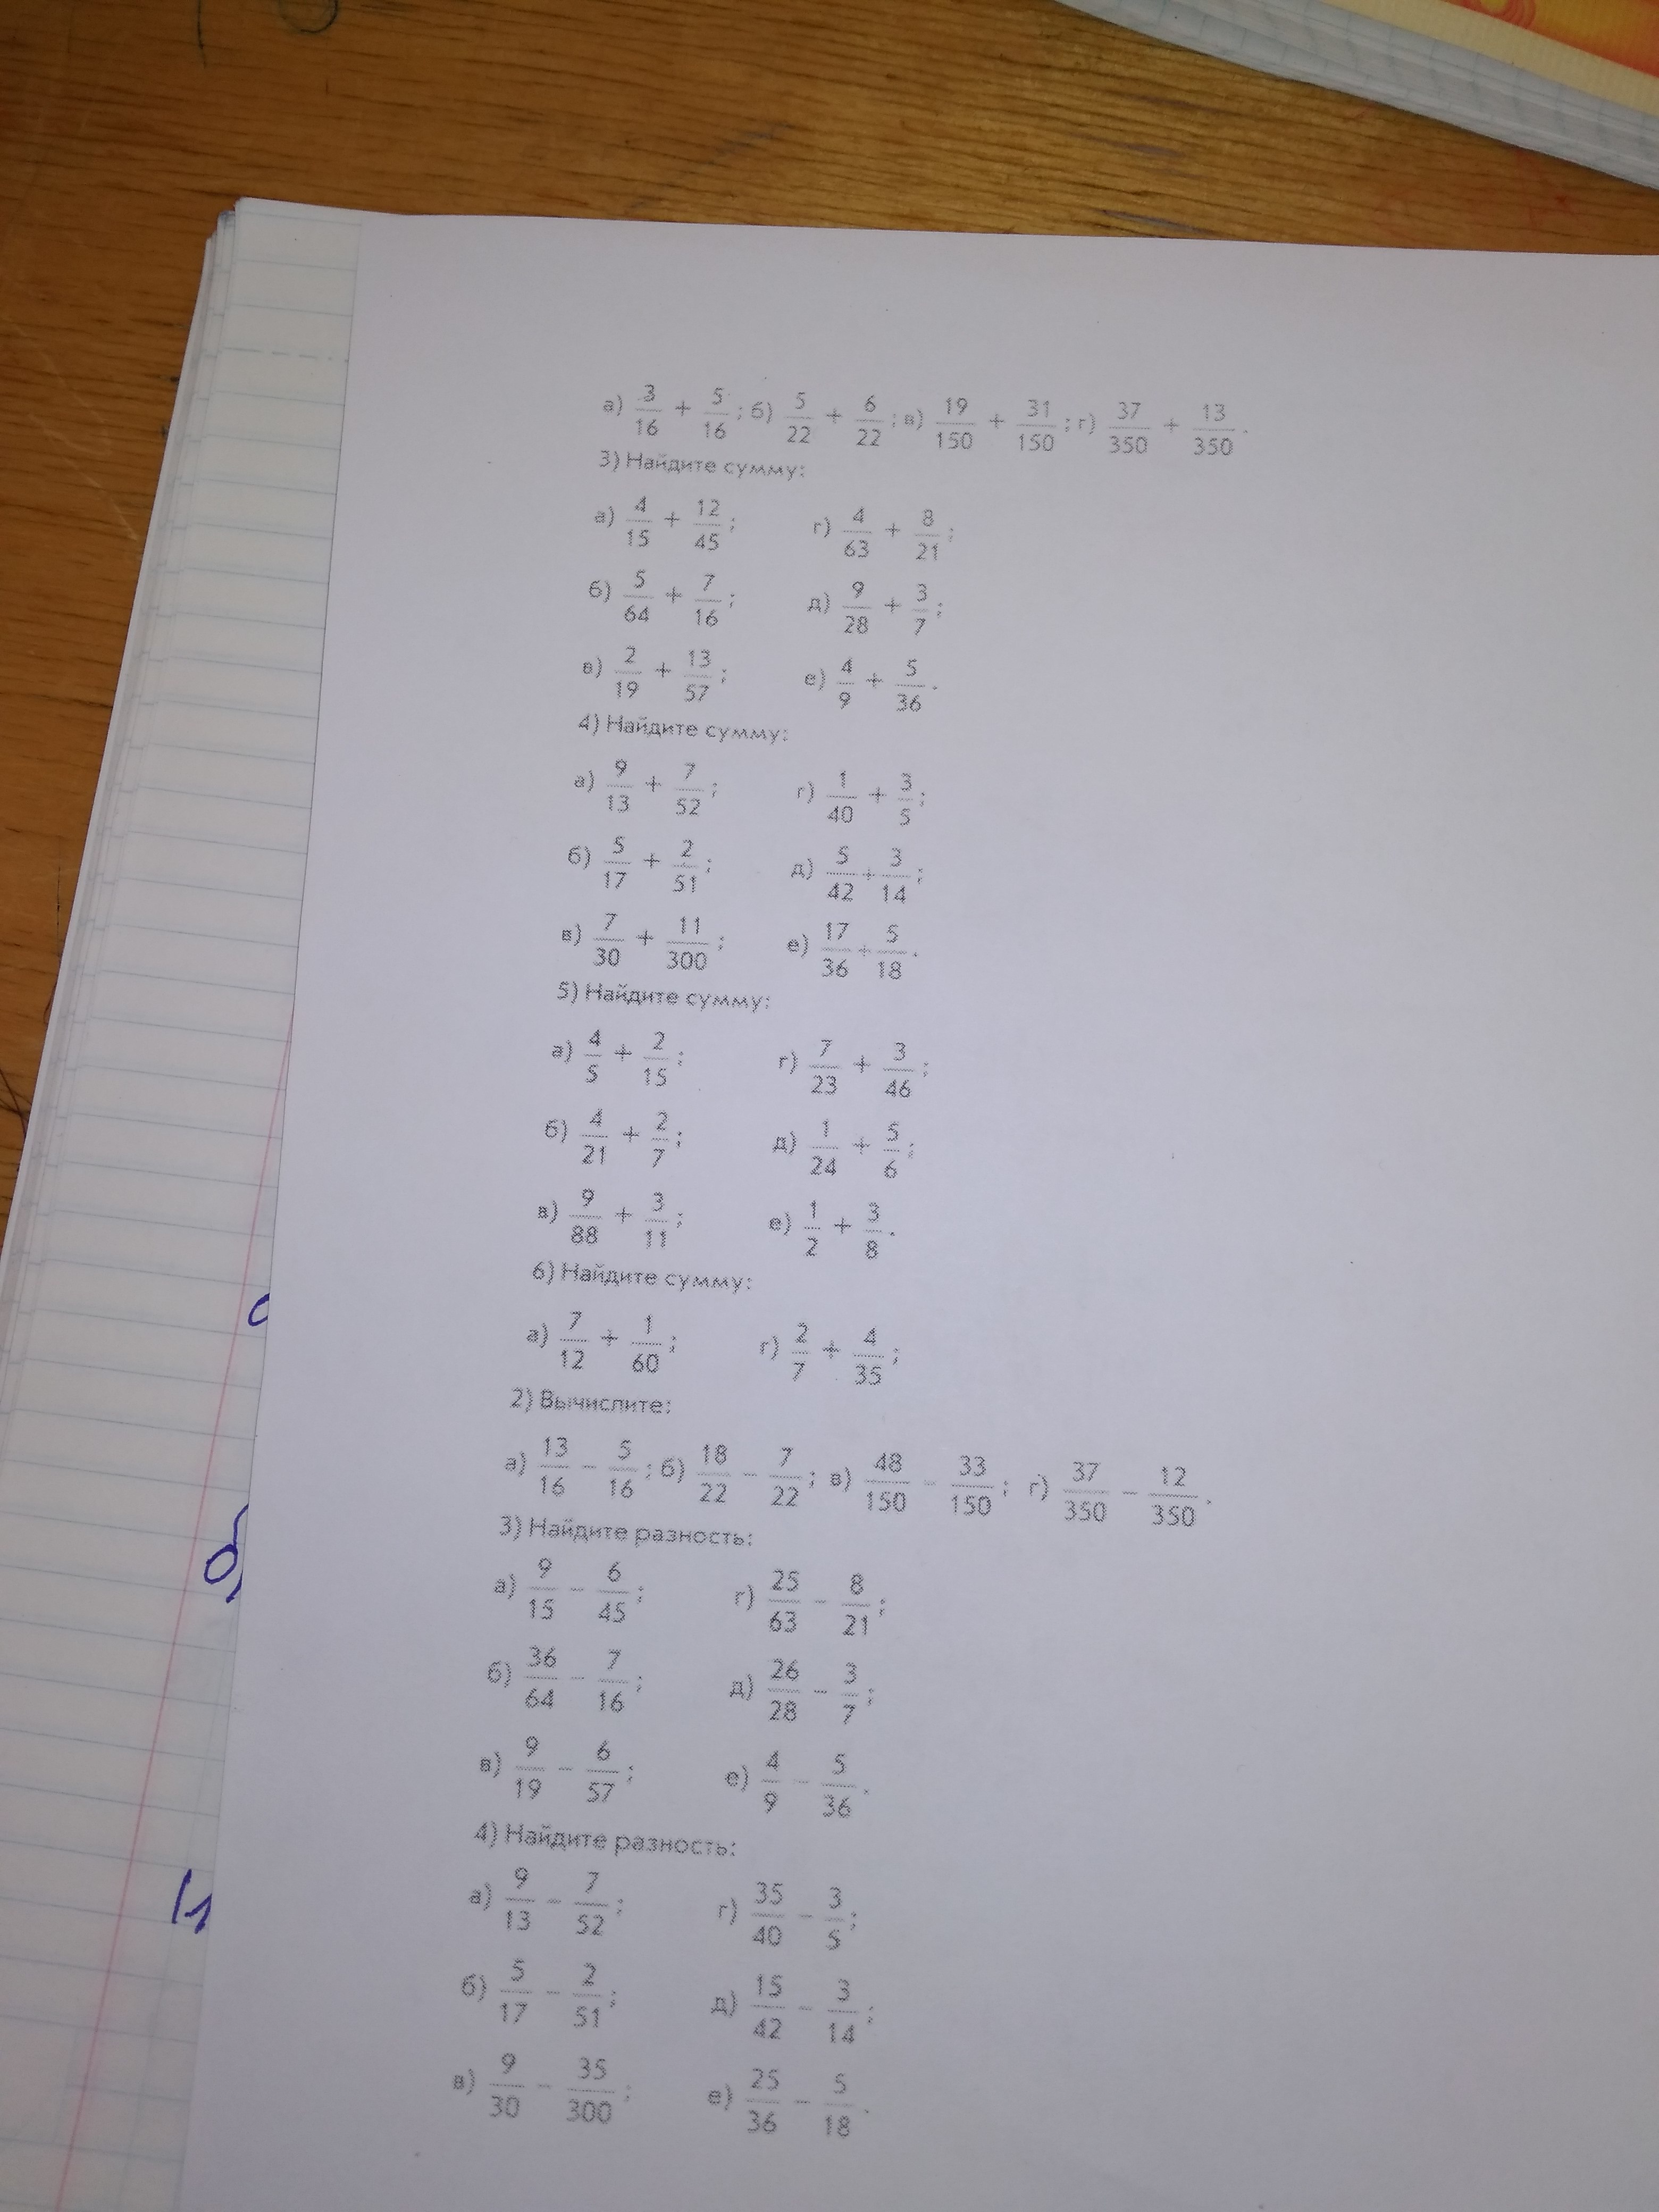 а) 3/16 + 5/16; б) 5/22 + 6/22; в) 19/150 + 31/150; г) 37/350 + 13/350.
3) Найдите сумму:
а) 4/15 + 12/45; г) 4/63 + 8/21;
б) 5/64 + 7/16; д) 9/28 + 3/7;
в) 2/19 + 13/57; е) 4/9 + 5/36.
4) Найдите сумму:
а) 9/13 + 7/52; г) 1/40 + 3/5;
б) 5/17 + 2/51; д) 5/42 + 3/14;
в) 7/30 + 11/300; е) 17/36 + 5/18.
5) Найдите сумму:
а) 4/5 + 2/15; г) 7/23 + 3/46;
б) 4/21 + 2/7; д) 1/24 + 5/6;
в) 9/88 + 3/11; е) 1/2 + 3/8.
6) Найдите сумму:
а) 7/12 + 1/60; г) 2/7 + 4/35;
2) Вычислите:
а) 13/16 − 5/16; б) 18/22 − 7/22; в) 48/150 − 33/150; г) 37/350 − 12/350.
3) Найдите разность:
а) 9/15 − 6/45; г) 25/63 − 8/21;
б) 36/64 − 7/16; д) 26/28 − 3/7;
в) 9/19 − 6/57; е) 4/9 − 5/36.
4) Найдите разность:
а) 9/13 − 7/52; г) 35/40 − 3/5;
б) 5/17 − 2/51; д) 15/42 − 3/14;
в) 9/30 − 35/300; е) 25/36 − 5/18.